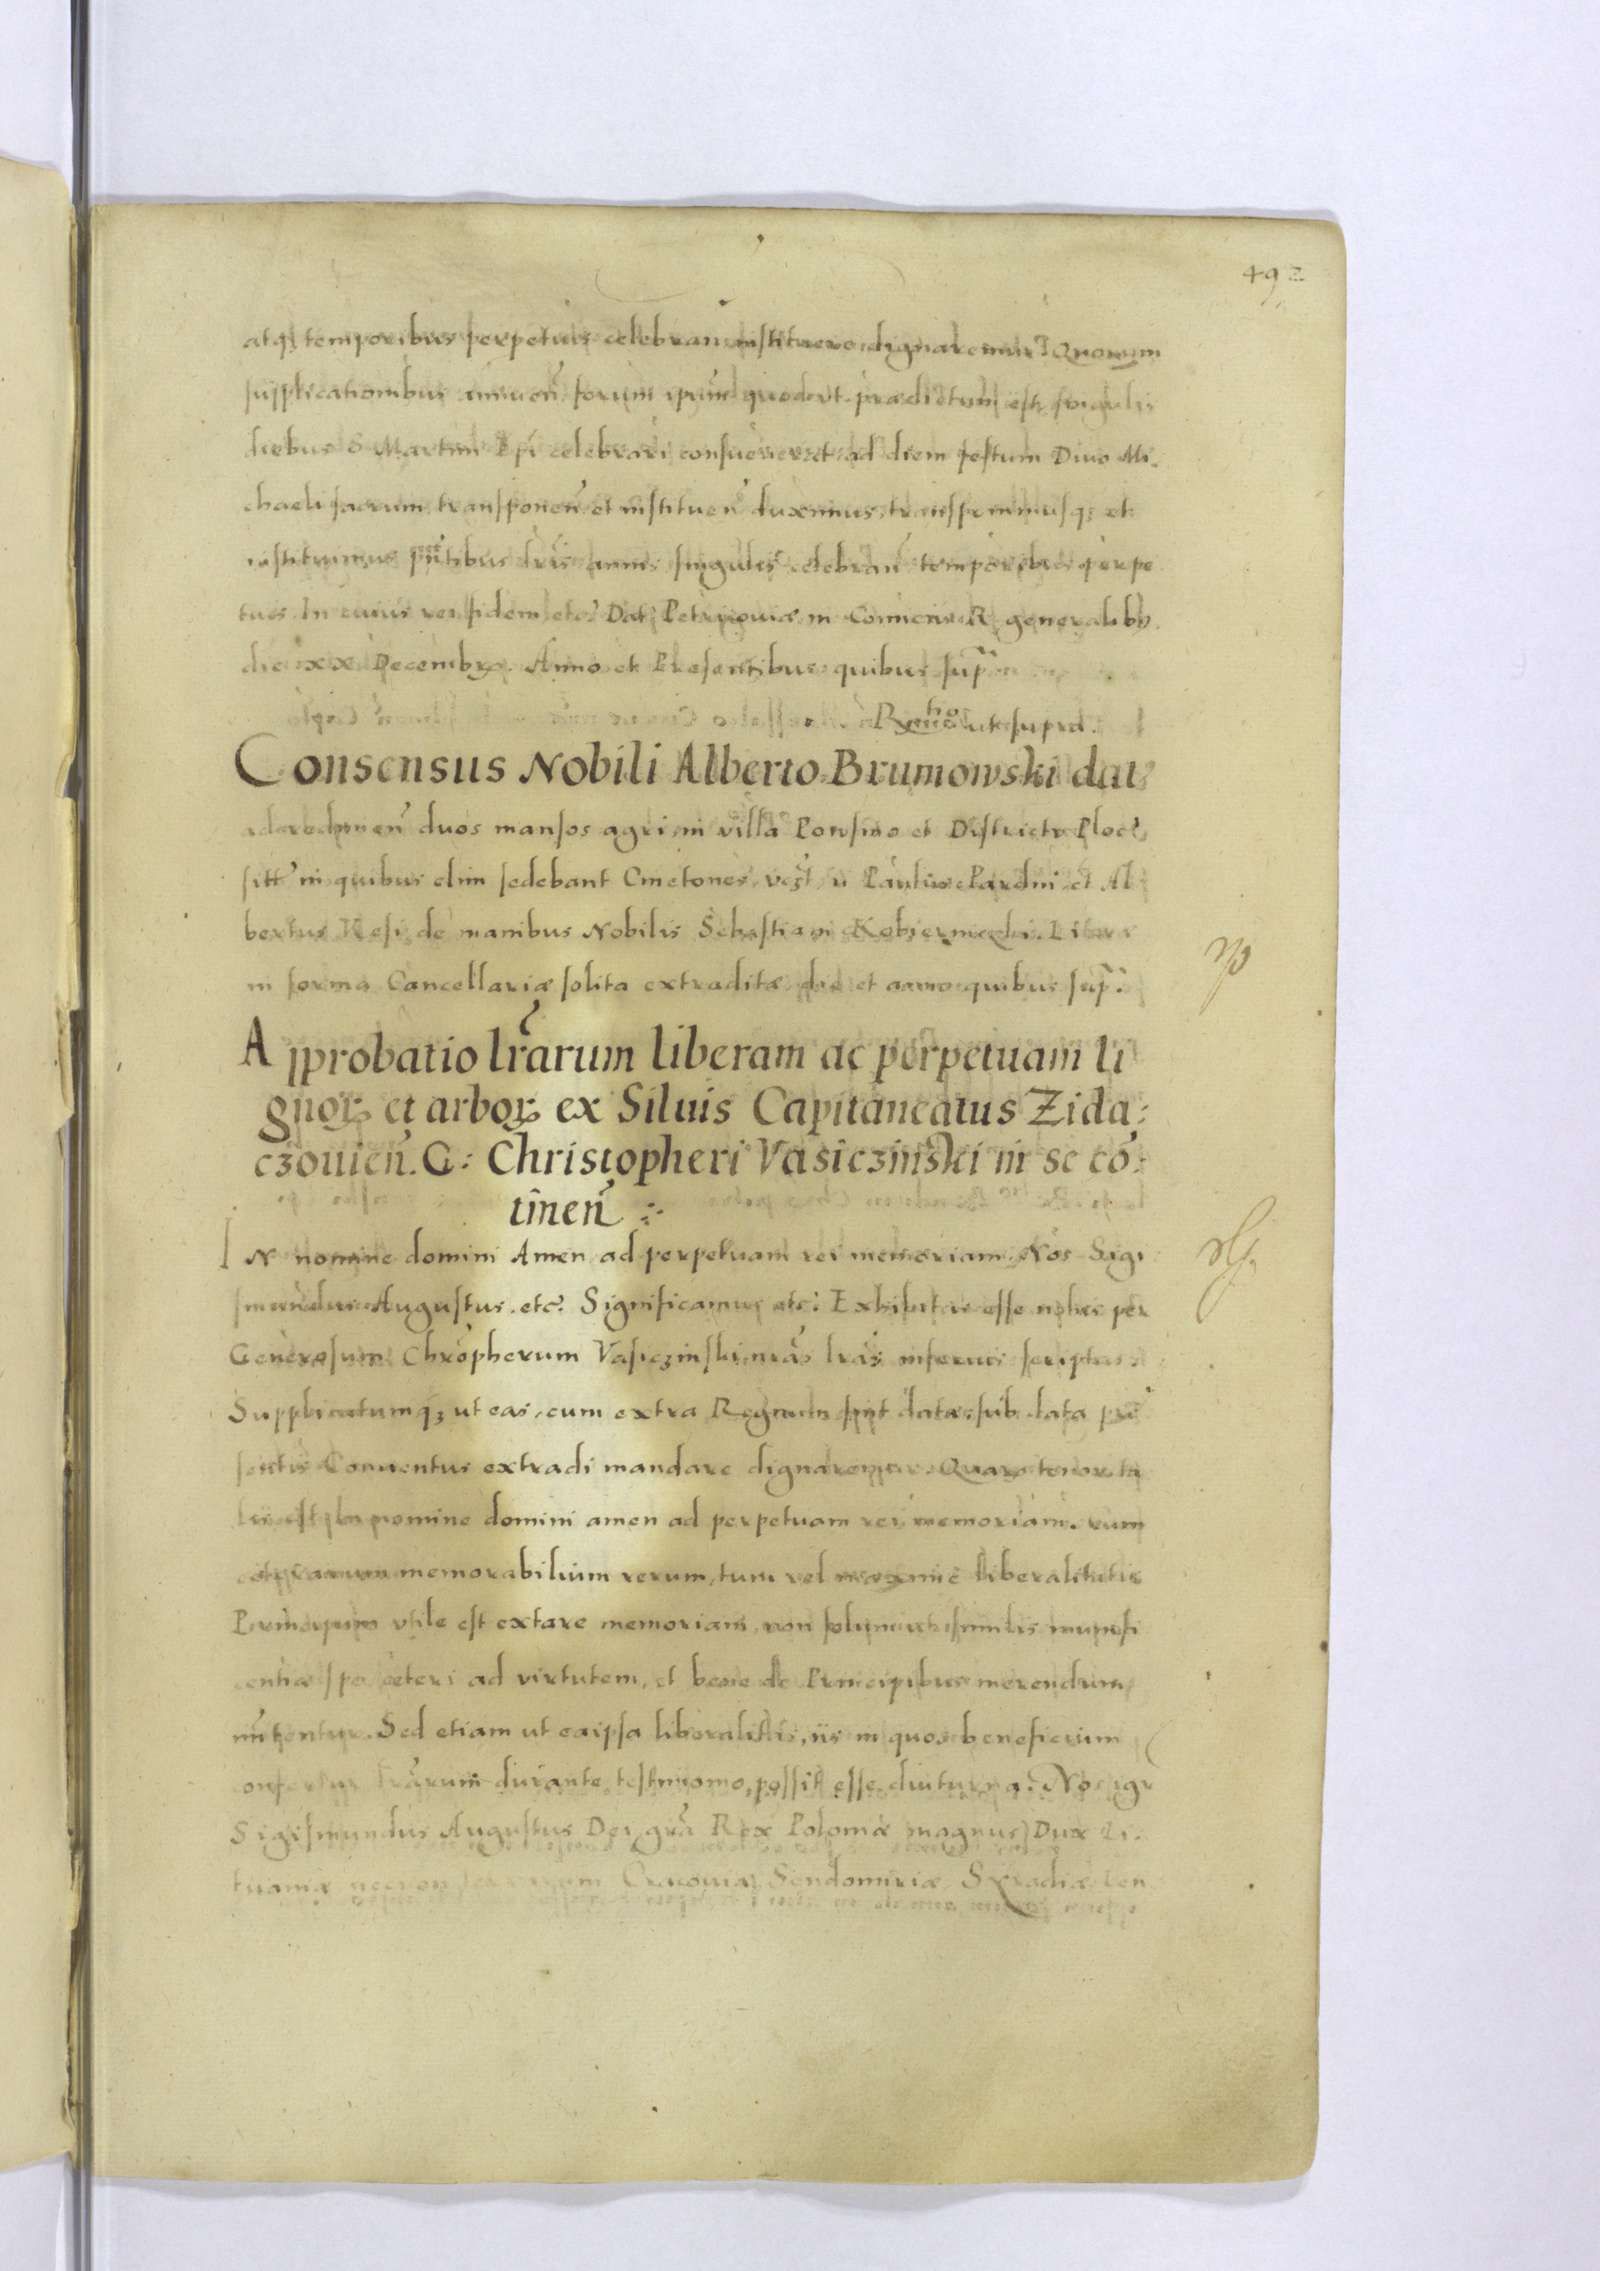 492
atq; temporibus perpetuis celebran̄ instituere dignaremur. Quorum
supplicationibus annuen̄ forum ipsum quod ut praedictum est singulis
diebus S Martini Epi celebrari consueverat ad diem festum Divo Mi-
chaeli sacrum transponen̄ et instituen̄ duximus, transponimusq; et
instituimus pn̄tibus lr̄is annis singulis celebran̄ temporibus perpe
tuis. In cuius rei fidem etc. Dat Petricoviæ in Conventu R generalibus
die xx Decembrs. Anno et Presentibus quibus supra
R ut supra.
Consensus Nobili Alberto Brumowski dat
ad redimen̄ duos mansos agri in villa Ponsino et Districtu Ploc̄
sitt̄ in quibus olim sedebant Cmetones, Paulus et Al
bertus de manibus Nobilis Sebastiani Kobiernicki. Literæ
in forma Cancellariæ solita extraditæ die et anno quibus sup̄.
Approbatio lr̄arum liberam ac perpetuam li
gnoꝝ et arboꝝ ex Siluis Capitaneatus Zida-
czouien̄. G: Christopheri Vasiczinski in se cō-
tinen̄
IN nomine domini Amen ad perpetuam rei memoriam. Nos Sigi
smundus Augustus. etc. Significamus etc: Exhibitas esse nobis per
Generosum Chrōpherum Vasiczinski nr̄as lr̄as inferius scriptas.
Supplicatumq; ut eas, cum extra Regnum sint datæ, sub data præ
sentis Conventus extradi mandare dignaremur. Quarū tenor ta
lis est In nomine domini amen ad perpetuam rei memoriam. cum
memorabilium rerum, tum vel maxime liberalitatis
Principum vtile est extare memoriam, non solum ut similis munifi
centiæ spe ceteri ad virtutem, et bene de Principibus merendum
inuitentur. Sed etiam ut eaipsa liberalitas, iis in quos beneficium
confertur lr̄arum durante testimonio, possit esse diuturna. Nos igr
Sigismundus Augustus Dei gr̄a Rex Poloniæ magnus Dux Li-
tuaniæ necnon terrarum Cracoviæ Sendomiriæ Siradiæ Len